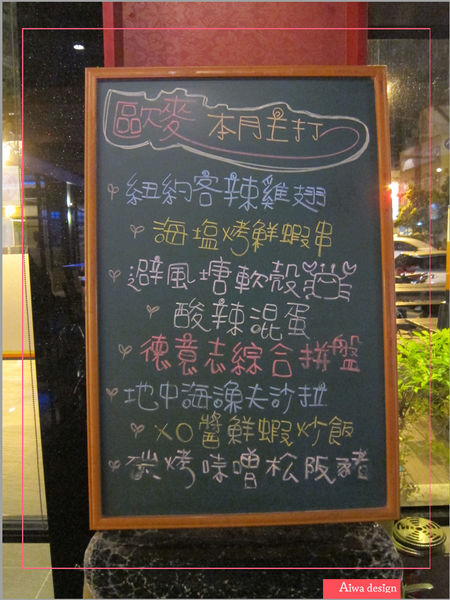 歐麥 本月主打
紐約客辣雞翅
海塩烤鮮蝦串
避風塘軟殼
酸辣混蛋
德意志綜合拼盤
地中海漁夫沙拉
XO醬鮮蝦炒飯
炭烤味噌松阪豬
Aiwa design